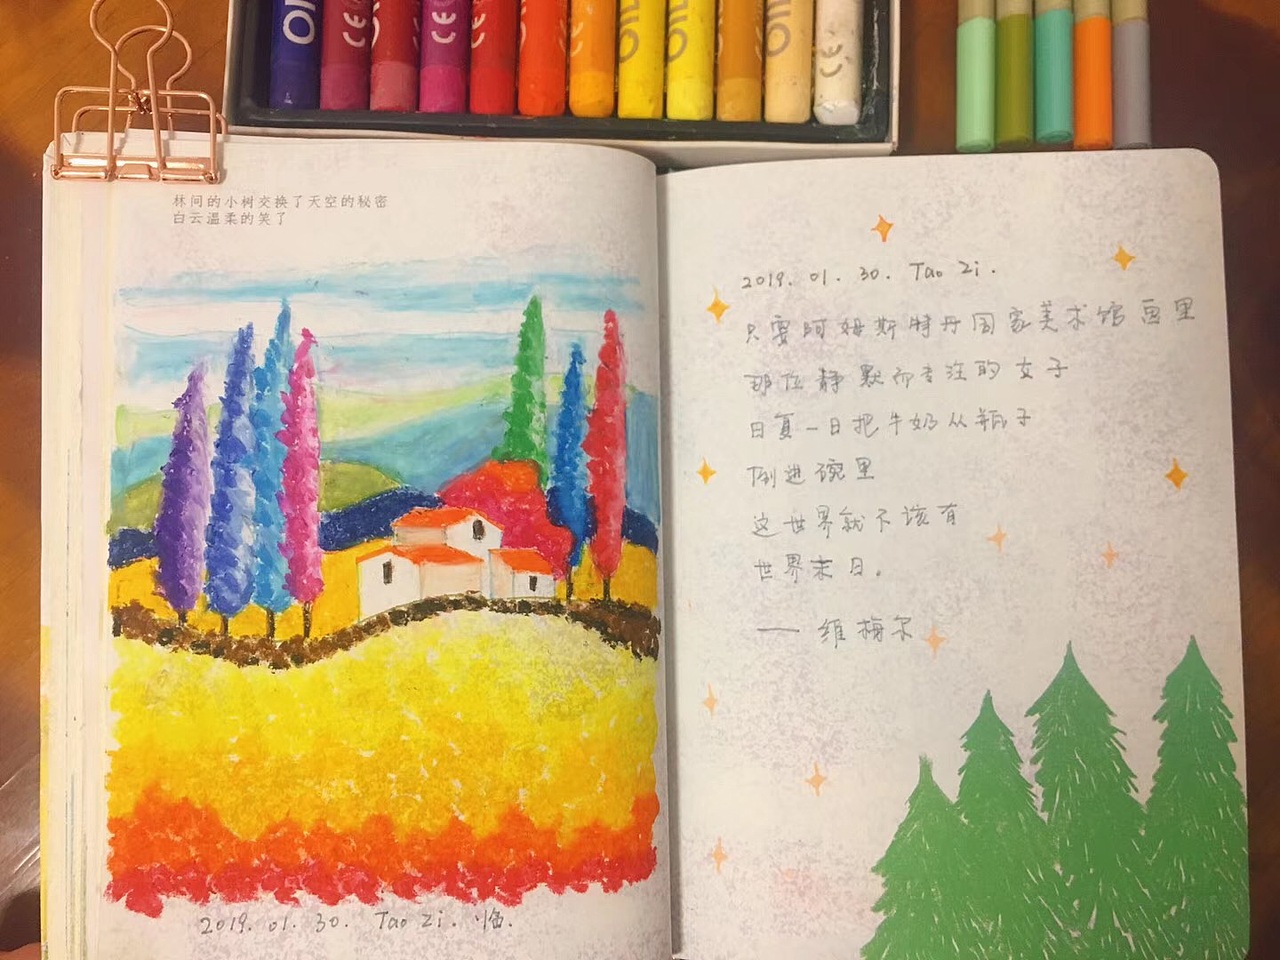 OIL
CE
CE
CE
CE
OIL
OIL
OIL
CE
林间的小树交换了天空的秘密
白云温柔的笑了
2019. 01. 30. Tao Zi. 临.
2019. 01. 30. Tao Zi.
只要阿姆斯特丹国家美术馆画里
那位静默而专注的女子
日复一日把牛奶从瓶子
倒进碗里
这世界就不该有
世界末日。
—— 维梅尔